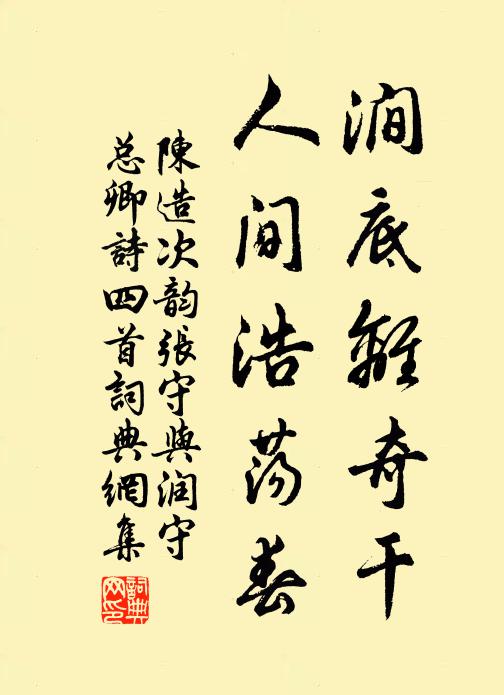 澗底離奇干
人间浩荡春
陳造次韵張守與润守
总卿詩四首詞典網集
詞典
网印